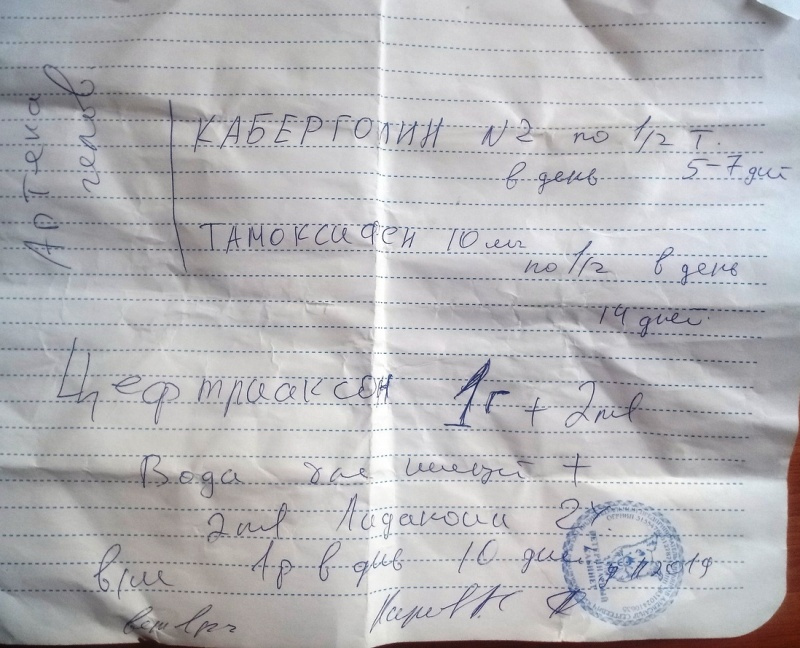 Аптека
челов.
КАБЕРГОЛИН N2 по 1/2 Т.
в день 5-7 дней
ТАМОКСИФЕН 10 мг
по 1/2 в день
14 дней.
Цефтриаксон 1г + 2 мл
Вода для инъекций +
2 мл Лидокоин 2%
в/м 1р в день 10 дней 2019
вет врач